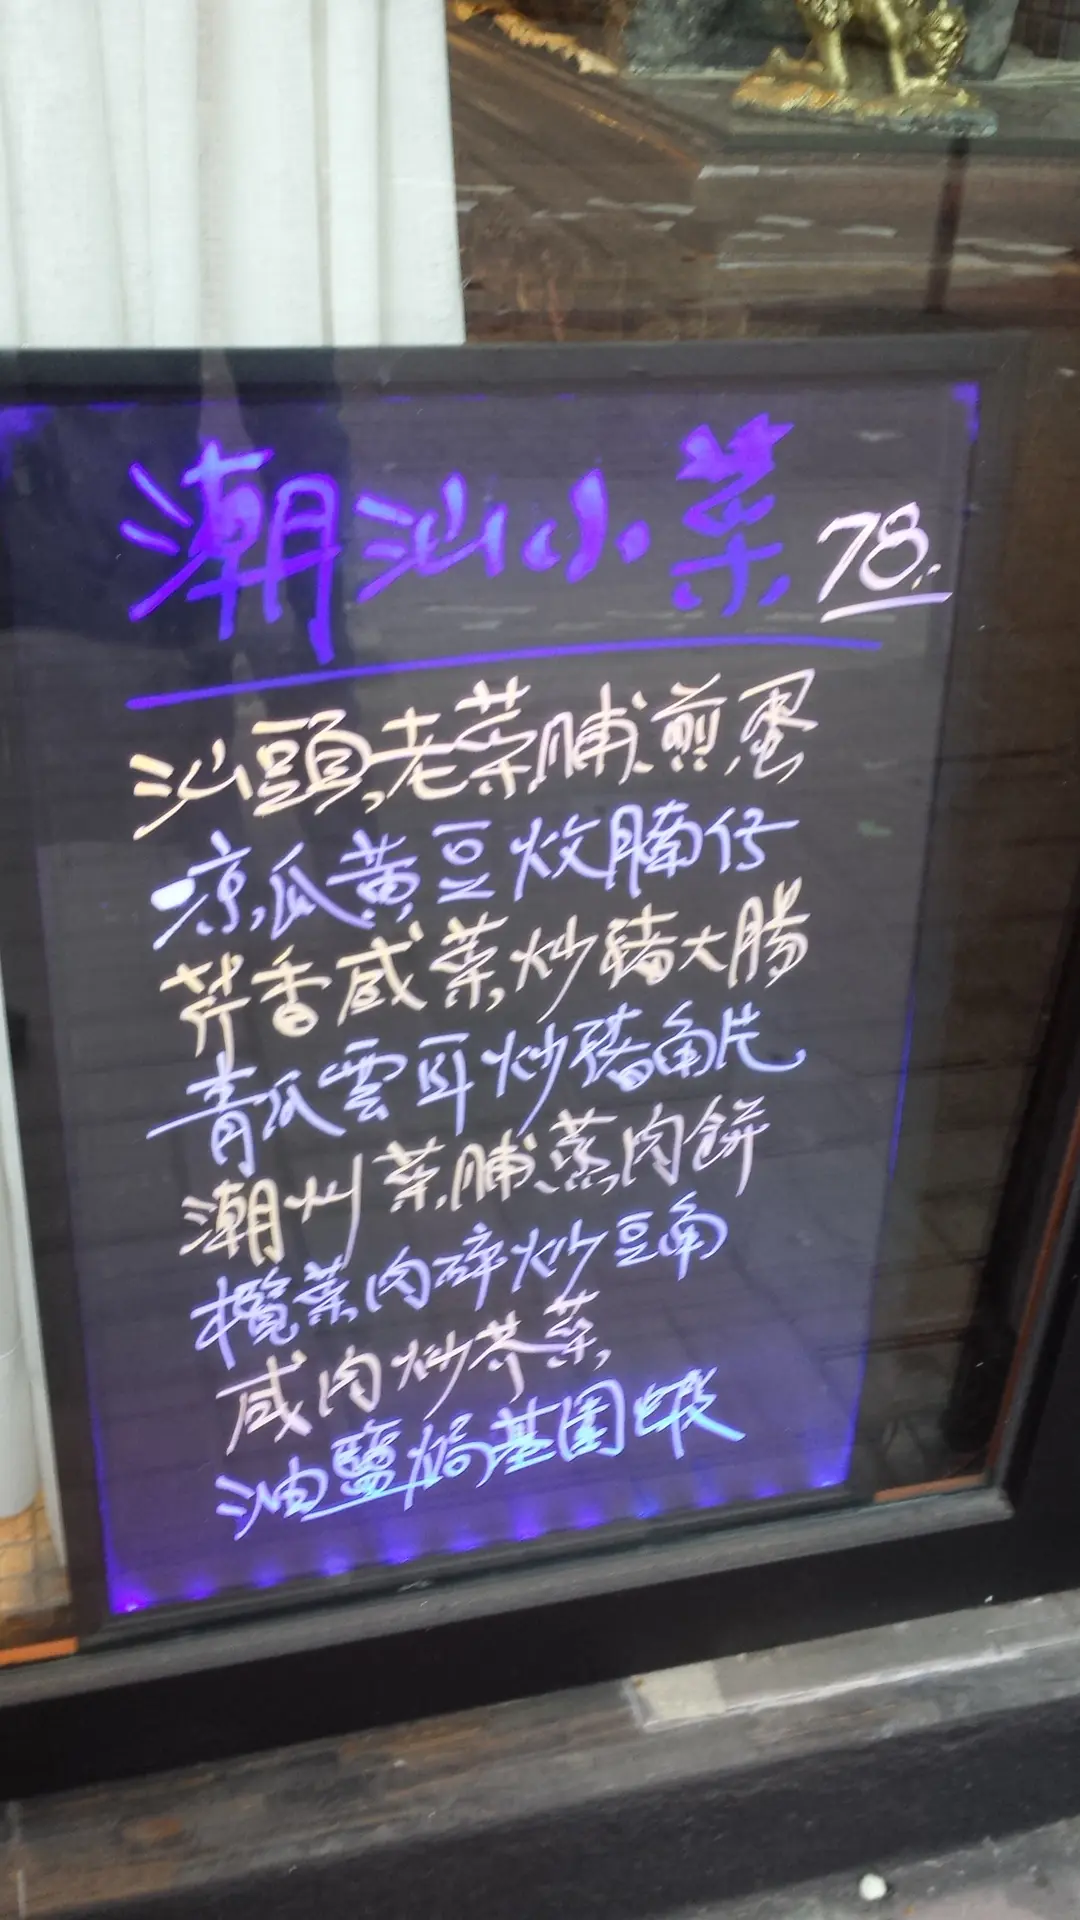 潮汕小菜 78.-
汕頭老菜脯煎蛋
涼瓜黃豆炆腩仔
芹香咸菜炒豬大腸
青瓜雲耳炒豬角片
潮州菜脯蒸肉餅
欖菜肉碎炒豆角
咸肉炒芥菜
油鹽焗基圍蝦